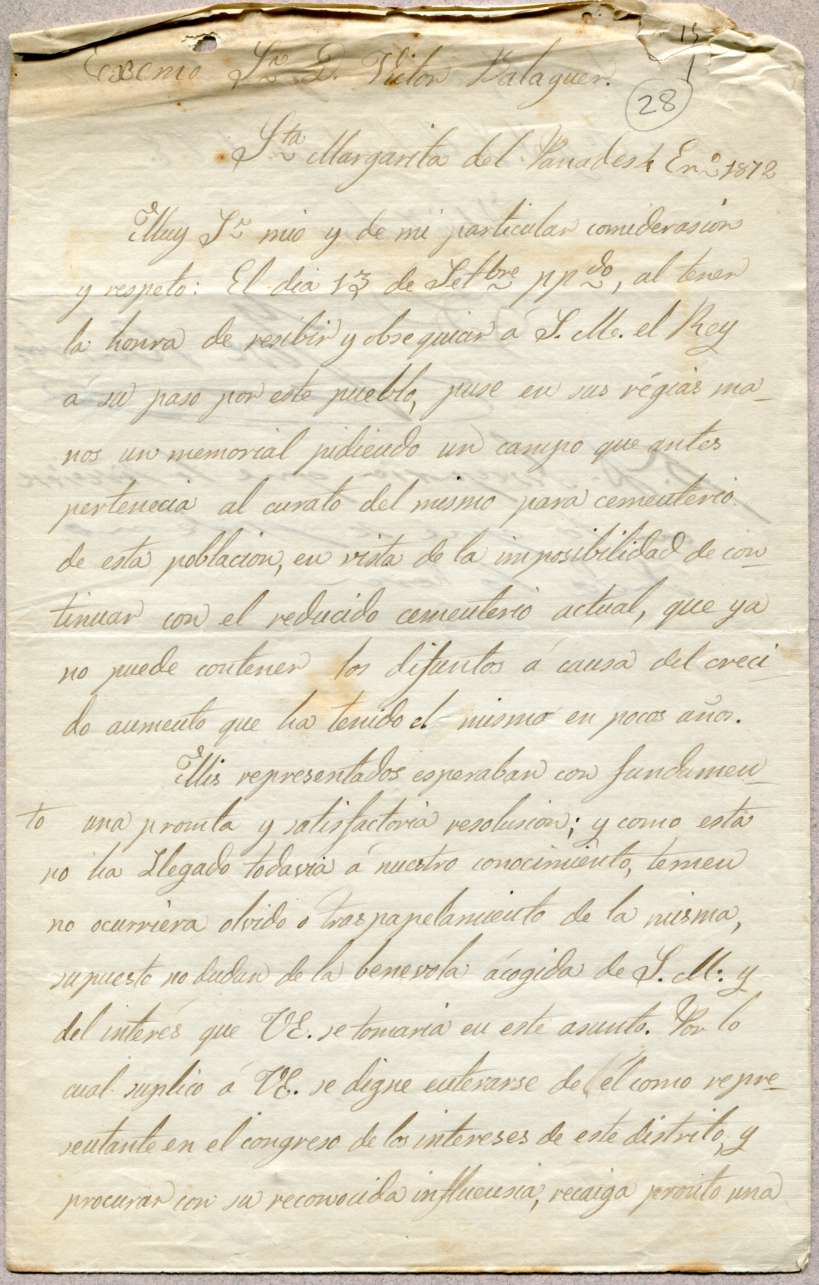 15
Excmo Sr. D. Victor Balaguer.
28
Sta Margarita del Panades 4 Ero 1872
Muy Sr mio y de mi particular considerasion
y respeto: El dia 13 de Setbre ppdo, al tener
la honra de resibir y obsequiar á S. M. el Rey
á su paso por este pueblo, puse en sus régias ma-
nos un memorial pidiendo un campo que antes
pertenecia al curato del mismo para cementerio
de esta poblacion, en vista de la imposibilidad de con-
tinuar con el reducido cementerio actual, que ya
no puede contener los difuntos á causa del creci-
do aumento que ha tenido el mismo en pocos años.
Mis representados esperaban con fundamen-
to una pronta y satisfactoria resolusion; y como esta
no ha llegado todavia á nuestro conocimiento, temen
no ocurriera olvido o traspapelamiento de la misma,
supuesto no dudan de la benevola ácogida de S. M. y
del interés que VE. se tomaria en este asunto. Por lo
cual suplico á VE. se digne enterarse de él como repre-
sentante en el congreso de los intereses de este distrito, y
procurar con su reconocida influensia, recaiga pronto una